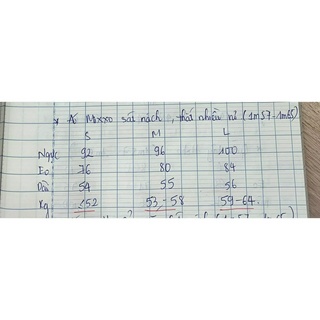 * Áo Mixxo sát nách, thái nhiều ni (1m57-1m65)
S M L
Ngực 92 96 100
Eo 76 80 84
Dài 54 55 56
Kg ≤52 53-58 59-64.